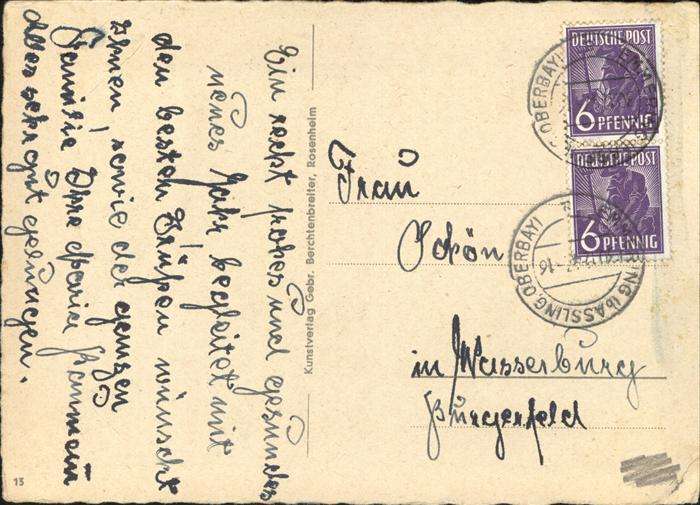 Ein recht frohes und gesundes
neues Jahr begleitet mit
den besten Grüßen wünscht
Ihnen, sowie der ganzen
Familie Ihre Maria
alles sehr gut gelungen.
Kunstverlag Gebr. Berchtenbreiter, Rosenheim
Frau
Schön
in Wasserburg
Burgerfeld
DEUTSCHE POST
6 PFENNIG
DEUTSCHE POST
6 PFENNIG
OBERBAY
ASSLING OBERBAY
13